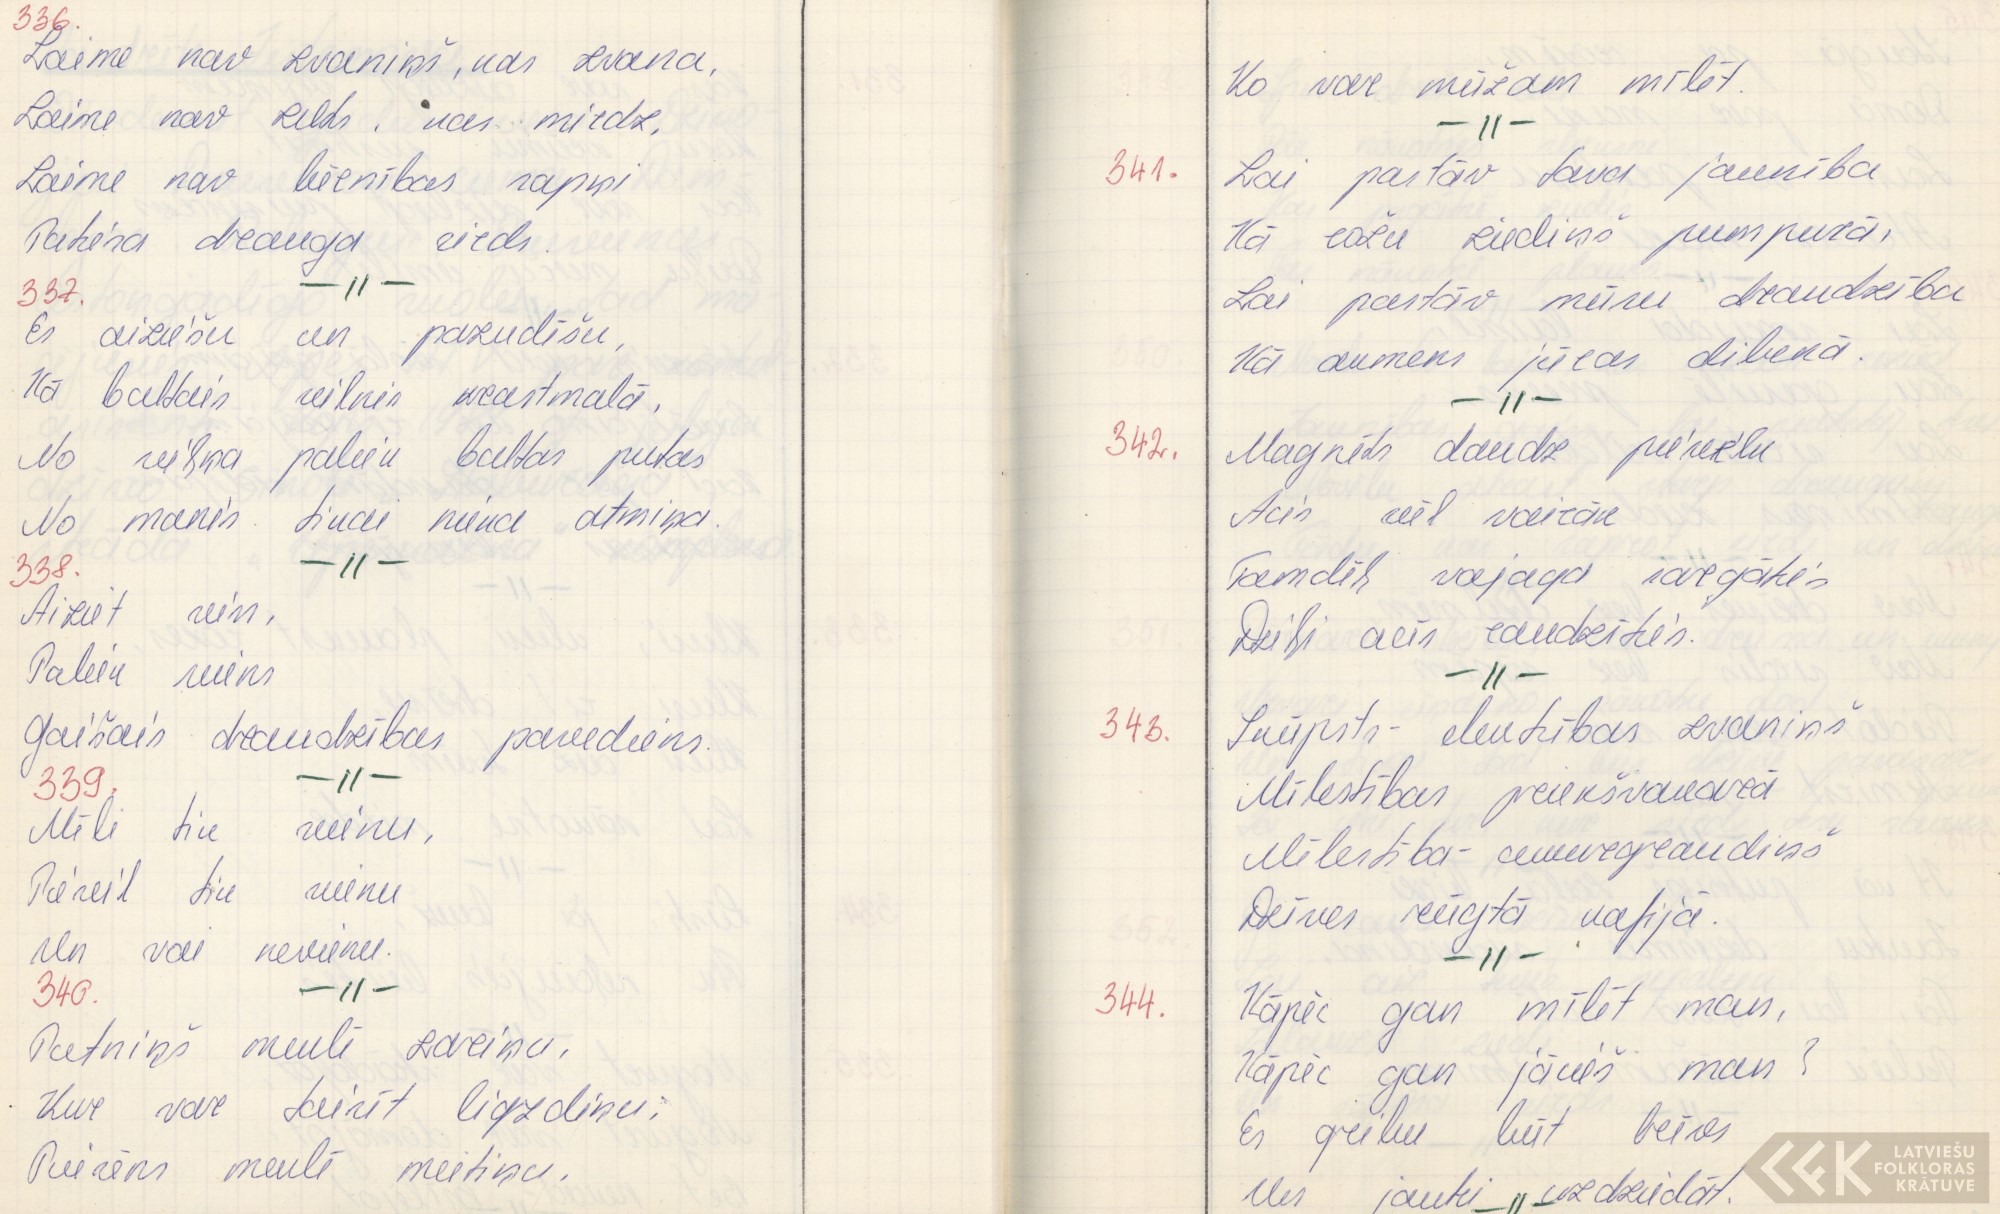 336.
Laime nav zvaniņš, kas zvana,
Laime nav zelts, kas mirdz,
Laime nav bērnības sapņi
Patiesa drauga sirds.
— 〃 —
337.
Es aiziešu un pazudīšu,
Kā baltais vilnis krastmalā,
No viļņa paliek baltas putas
No manis tikai viena atmiņa.
— 〃 —
338.
Aiziet viss,
Paliek viens
Gaišais draudzības pavediens.
— 〃 —
339.
Mīli tik vienu,
Pieviļ tik vienu
Un vai nevienu.
— 〃 —
340.
Putniņš meklē zariņu,
Kur var taisīt ligzdiņu;
Puisēns meklē meitiņu,
Ko var mūžam mīlēt.
— 〃 —
341.
Lai pastāv tava jaunība
Kā rožu ziediņš pumpurā,
Lai pastāv mūsu draudzība
Kā akmens jūras dibenā.
— 〃 —
342.
Magnēts daudz pievelk
Acis vēl vairāk
Tamdēļ vajaga sargāties
Dziļi acīs raudzīties.
— 〃 —
343.
Skūpsts - elektrības zvaniņš
Mīlestības priekšvakarā
Mīlestība - cukurgraudiņš
Dzīves rūgtā kafijā.
— 〃 —
344.
Kāpēc gan mīlēt man,
Kāpēc gan jācieš man?
Es gribu būt brīvs
Un jauki uzdziedāt.
— 〃 —
LATVIEŠU
FOLKLORAS
KRĀTUVE